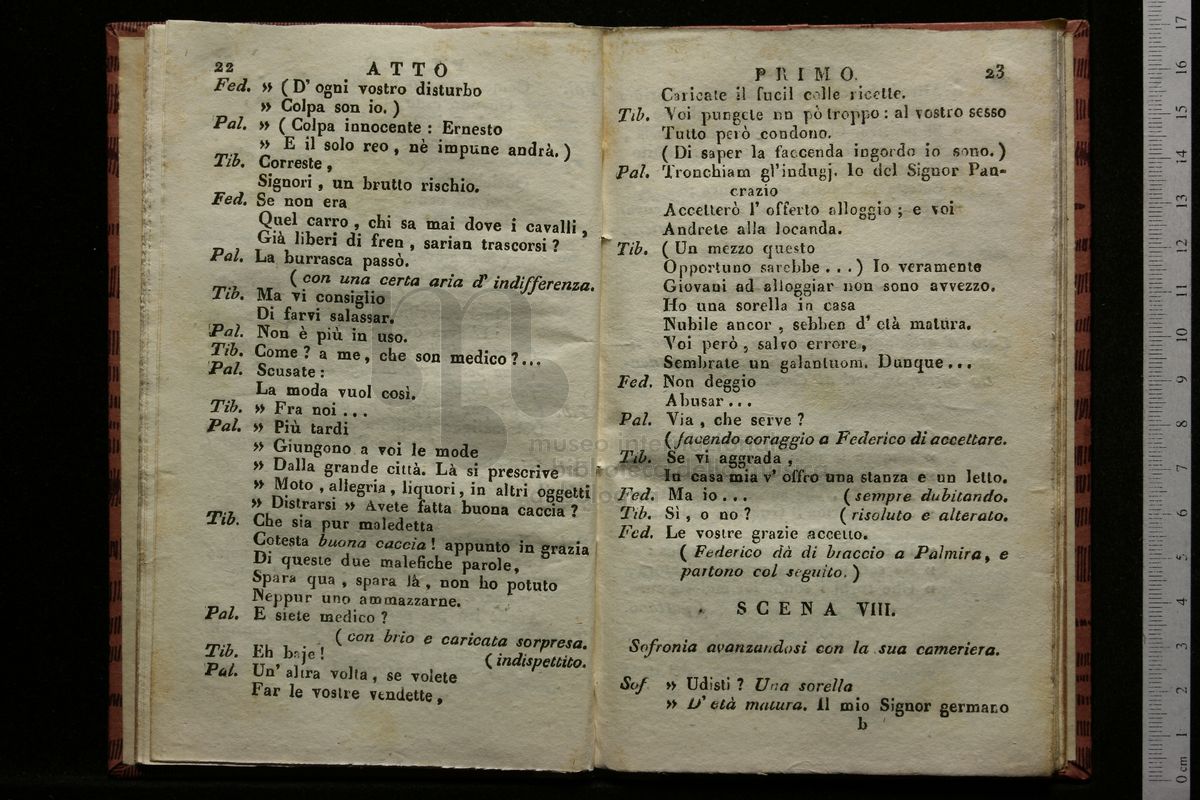 22 ATTO
Fed. » (D' ogni vostro disturbo
» Colpa son io.)
Pal. » (Colpa innocente : Ernesto
» E il solo reo, nè impune andrà.)
Tib. Correste,
Signori, un brutto rischio.
Fed. Se non era
Quel carro, chi sa mai dove i cavalli,
Già liberi di fren, sarian trascorsi?
Pal. La burrasca passò.
(con una certa aria d' indifferenza.
Tib. Ma vi consiglio
Di farvi salassar.
Pal. Non è più in uso.
Tib. Come? a me, che son medico?...
Pal. Scusate:
La moda vuol così.
Tib. » Fra noi...
Pal. » Più tardi
» Giungono a voi le mode
» Dalla grande città. Là si prescrive
» Moto, allegria, liquori, in altri oggetti
» Distrarsi » Avete fatta buona caccia?
Tib. Che sia pur maledetta
Cotesta buona caccia! appunto in grazia
Di queste due malefiche parole,
Spara qua, spara là, non ho potuto
Neppur uno ammazzarne.
Pal. E siete medico?
(con brio e caricata sorpresa.
Tib. Eh baje! (indispettito.
Pal. Un' altra volta, se volete
Far le vostre vendette,
PRIMO. 23
Caricate il fucil colle ricette.
Tib. Voi pungete un pò troppo: al vostro sesso
Tutto però condono.
(Di saper la faccenda ingordo io sono.)
Pal. Tronchiam gl'indugj. Io del Signor Pan-
crazio
Accetterò l' offerto alloggio; e voi
Andrete alla locanda.
Tib. (Un mezzo questo
Opportuno sarebbe...) Io veramente
Giovani ad alloggiar non sono avvezzo.
Ho una sorella in casa
Nubile ancor, sebben d' età matura.
Voi però, salvo errore,
Sembrate un galantuom. Dunque...
Fed. Non deggio
Abusar...
Pal. Via, che serve?
(facendo coraggio a Federico di accettare.
Tib. Se vi aggrada,
In casa mia v' offro una stanza e un letto.
Fed. Ma io... (sempre dubitando.
Tib. Sì, o no? (risoluto e alterato.
Fed. Le vostre grazie accetto.
(Federico dà di braccio a Palmira, e
partono col seguito.)
SCENA VIII.
Sofronia avanzandosi con la sua cameriera.
Sof » Udisti? Una sorella
» D' età matura. Il mio Signor germano
b